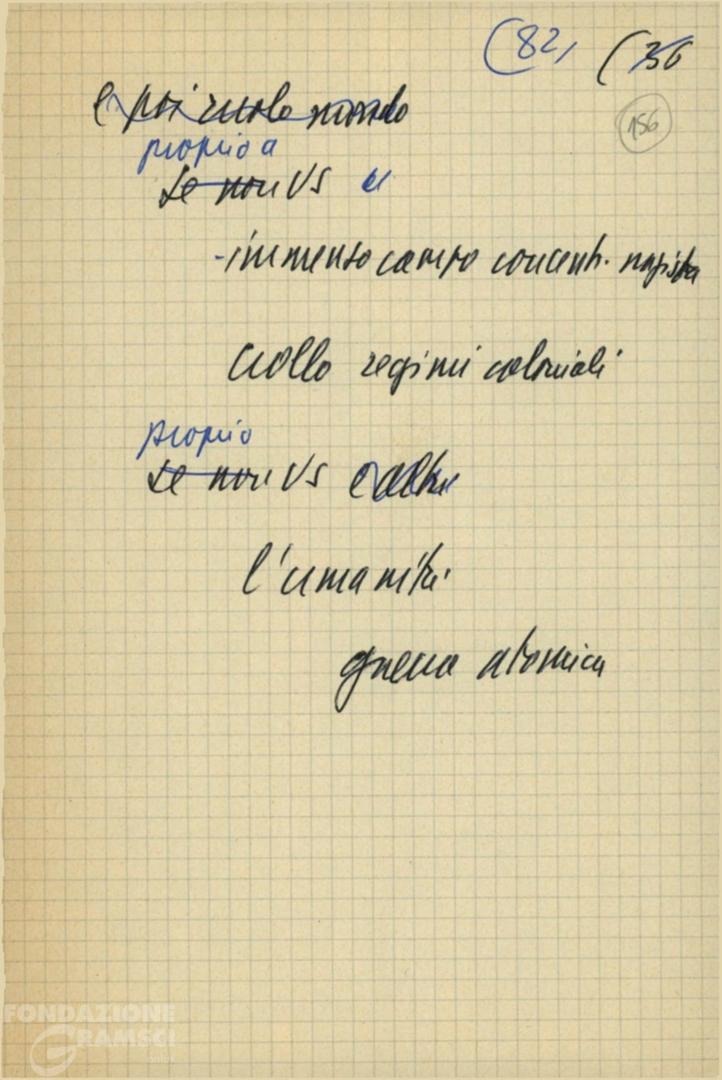 (82, (36
156
e poi ruolo mondo
proprio a
se non US
- immenso campo concentr. nazista
crollo regimi coloniali
proprio
se non US e altri
l'umanità
guerra atomica
FONDAZIONE
GRAMSCI